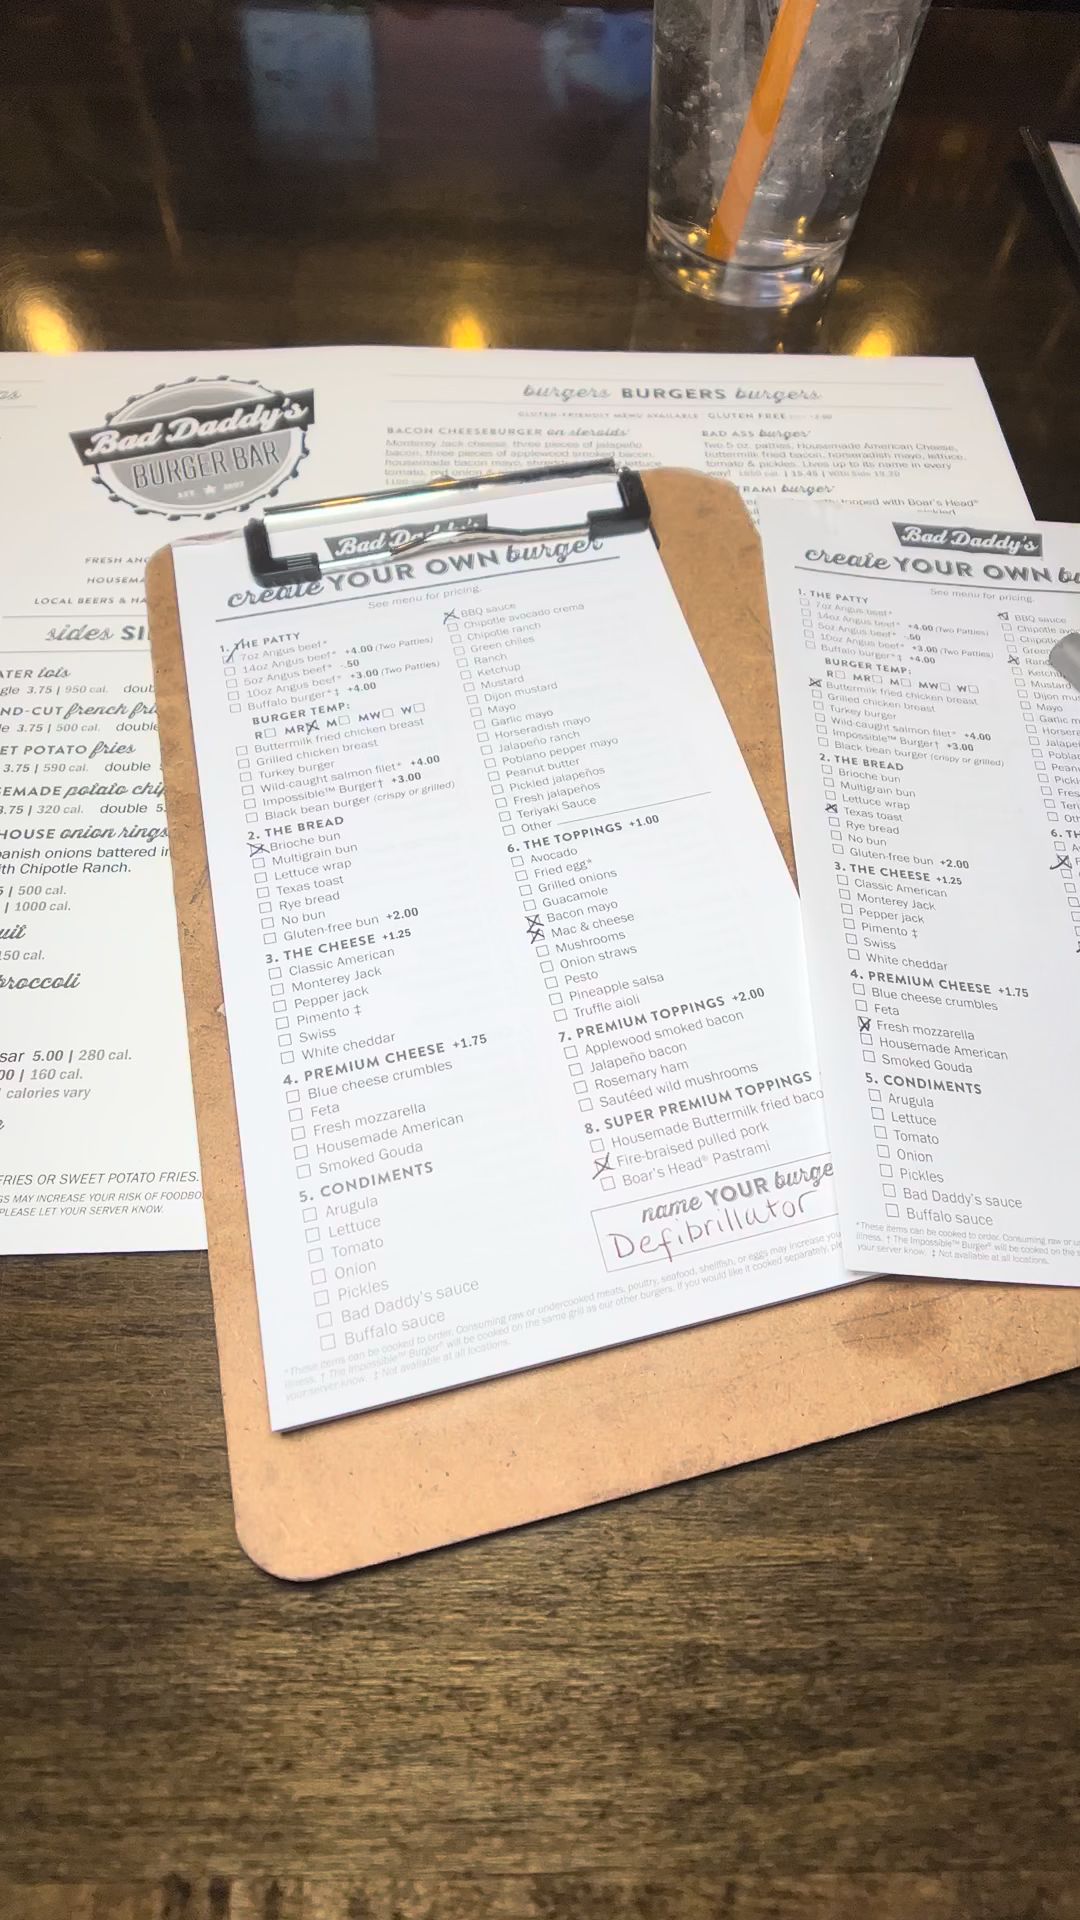 Bad Daddy's
BURGER BAR
EST 2007
FRESH AN
HOUSEMA
LOCAL BEERS & HA
sides SI
ATER tots
gle 3.75 | 950 cal. doub
ND-CUT french fri
e 3.75 | 500 cal. double
ET POTATO fries
3.75 | 590 cal. double
EMADE potato chip
3.75 | 320 cal. double 5.
HOUSE onion rings
panish onions battered in
ith Chipotle Ranch.
5 | 500 cal.
| 1000 cal.
uit
150 cal.
broccoli
sar 5.00 | 280 cal.
00 | 160 cal.
calories vary
FRIES OR SWEET POTATO FRIES.
GS MAY INCREASE YOUR RISK OF FOODBO
PLEASE LET YOUR SERVER KNOW.
burgers BURGERS burgers
GLUTEN-FRIENDLY MENU AVAILABLE GLUTEN FREE
BACON CHEESEBURGER on steroids
Monterey Jack cheese, three pieces of jalapeño
bacon, three pieces of applewood smoked bacon,
housemade bacon mayo, shredded lettuce
tomato, red onion &
BAD ASS burger
Two 5 oz. patties, Housemade American Cheese,
buttermilk fried bacon, horseradish mayo, lettuce,
tomato & pickles. Lives up to its name in every
way!
TRAMI burger
topped with Boar's Head®
Bad Daddy's
create YOUR OWN burger
See menu for pricing.
1. THE PATTY
7oz Angus beef*
14oz Angus beef* +4.00 (Two Patties)
5oz Angus beef* -.50
10oz Angus beef* +3.00 (Two Patties)
Buffalo burger*‡ +4.00
BURGER TEMP:
R MR M MW W
Buttermilk fried chicken breast
Grilled chicken breast
Turkey burger
Wild-caught salmon filet* +4.00
Impossible™ Burger† +3.00
Black bean burger (crispy or grilled)
2. THE BREAD
Brioche bun
Multigrain bun
Lettuce wrap
Texas toast
Rye bread
No bun
Gluten-free bun +2.00
3. THE CHEESE +1.25
Classic American
Monterey Jack
Pepper jack
Pimento ‡
Swiss
White cheddar
4. PREMIUM CHEESE +1.75
Blue cheese crumbles
Feta
Fresh mozzarella
Housemade American
Smoked Gouda
5. CONDIMENTS
Arugula
Lettuce
Tomato
Onion
Pickles
Bad Daddy's sauce
Buffalo sauce
BBQ sauce
Chipotle avocado crema
Chipotle ranch
Green chiles
Ranch
Ketchup
Mustard
Dijon mustard
Mayo
Garlic mayo
Horseradish mayo
Jalapeño ranch
Poblano pepper mayo
Peanut butter
Pickled jalapeños
Fresh jalapeños
Teriyaki Sauce
Other
6. THE TOPPINGS +1.00
Avocado
Fried egg*
Grilled onions
Guacamole
Bacon mayo
Mac & cheese
Mushrooms
Onion straws
Pesto
Pineapple salsa
Truffle aioli
7. PREMIUM TOPPINGS +2.00
Applewood smoked bacon
Jalapeño bacon
Rosemary ham
Sautéed wild mushrooms
8. SUPER PREMIUM TOPPINGS
Housemade Buttermilk fried baco
Fire-braised pulled pork
Boar's Head® Pastrami
name YOUR burge
Defibrillator
*These items can be cooked to order. Consuming raw or undercooked meats, poultry, seafood, shellfish, or eggs may increase you
illness. † The Impossible™ Burger® will be cooked on the same grill as our other burgers. If you would like it cooked separately, ple
your server know. ‡ Not available at all locations.
Bad Daddy's
create YOUR OWN bu
See menu for pricing.
1. THE PATTY
7oz Angus beef*
14oz Angus beef* +4.00 (Two Patties)
5oz Angus beef* -.50
10oz Angus beef* +3.00 (Two Patties)
Buffalo burger*‡ +4.00
BURGER TEMP:
R MR M MW W
Buttermilk fried chicken breast
Grilled chicken breast
Turkey burger
Wild-caught salmon filet* +4.00
Impossible™ Burger† +3.00
Black bean burger (crispy or grilled)
2. THE BREAD
Brioche bun
Multigrain bun
Lettuce wrap
Texas toast
Rye bread
No bun
Gluten-free bun +2.00
3. THE CHEESE +1.25
Classic American
Monterey Jack
Pepper jack
Pimento ‡
Swiss
White cheddar
4. PREMIUM CHEESE +1.75
Blue cheese crumbles
Feta
Fresh mozzarella
Housemade American
Smoked Gouda
5. CONDIMENTS
Arugula
Lettuce
Tomato
Onion
Pickles
Bad Daddy's sauce
Buffalo sauce
BBQ sauce
Chipotle avo
Chipotle
Green
Ranc
Ketchu
Mustard
Dijon mu
Mayo
Garlic m
Horsera
Jalape
Poblan
Peanu
Pickl
Fres
Teri
Oth
6. TH
*These items can be cooked to order. Consuming raw or u
illness. † The Impossible™ Burger® will be cooked on the s
your server know. ‡ Not available at all locations.